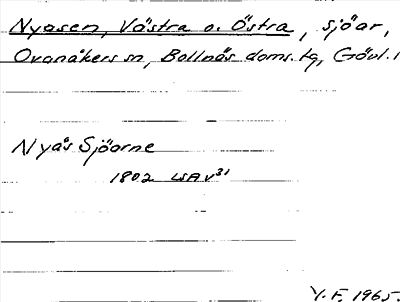 Nyasen, Västra o. Östra, sjöar,
Ovanåkers sn, Bollnäs doms.tg, Gävl.l
Nyås Sjöarne
1802 LSA V31
Y.F. 1965.